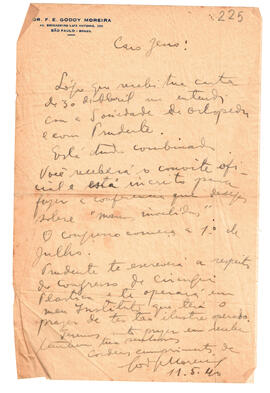 225
DR. F. E. GODOY MOREIRA
AV. BRIGADEIRO LUIZ ANTONIO,
SÃO PAULO - BRASIL
Caro Jesus!
Logo que recebi tua carta
de 30 de Abril me entendi
com a Sociedade de Ortopedia
e com Prudente.
Está tudo combinado
Você receberá o convite ofi-
cial e está inscrito para
fazer a conferencia que deseja
sobre "
O congresso começa a 1º de
Julho.
Prudente te escreverá a respeito
do congresso de Cirurgia
Plastica e te operará em
meu Instituto que terá o
prazer de ter tão ilustre operado.
Teremos muito prazer em receber
tambem tua senhora
Cordeais cumprimentos de
Godoy Moreira
11.5.40